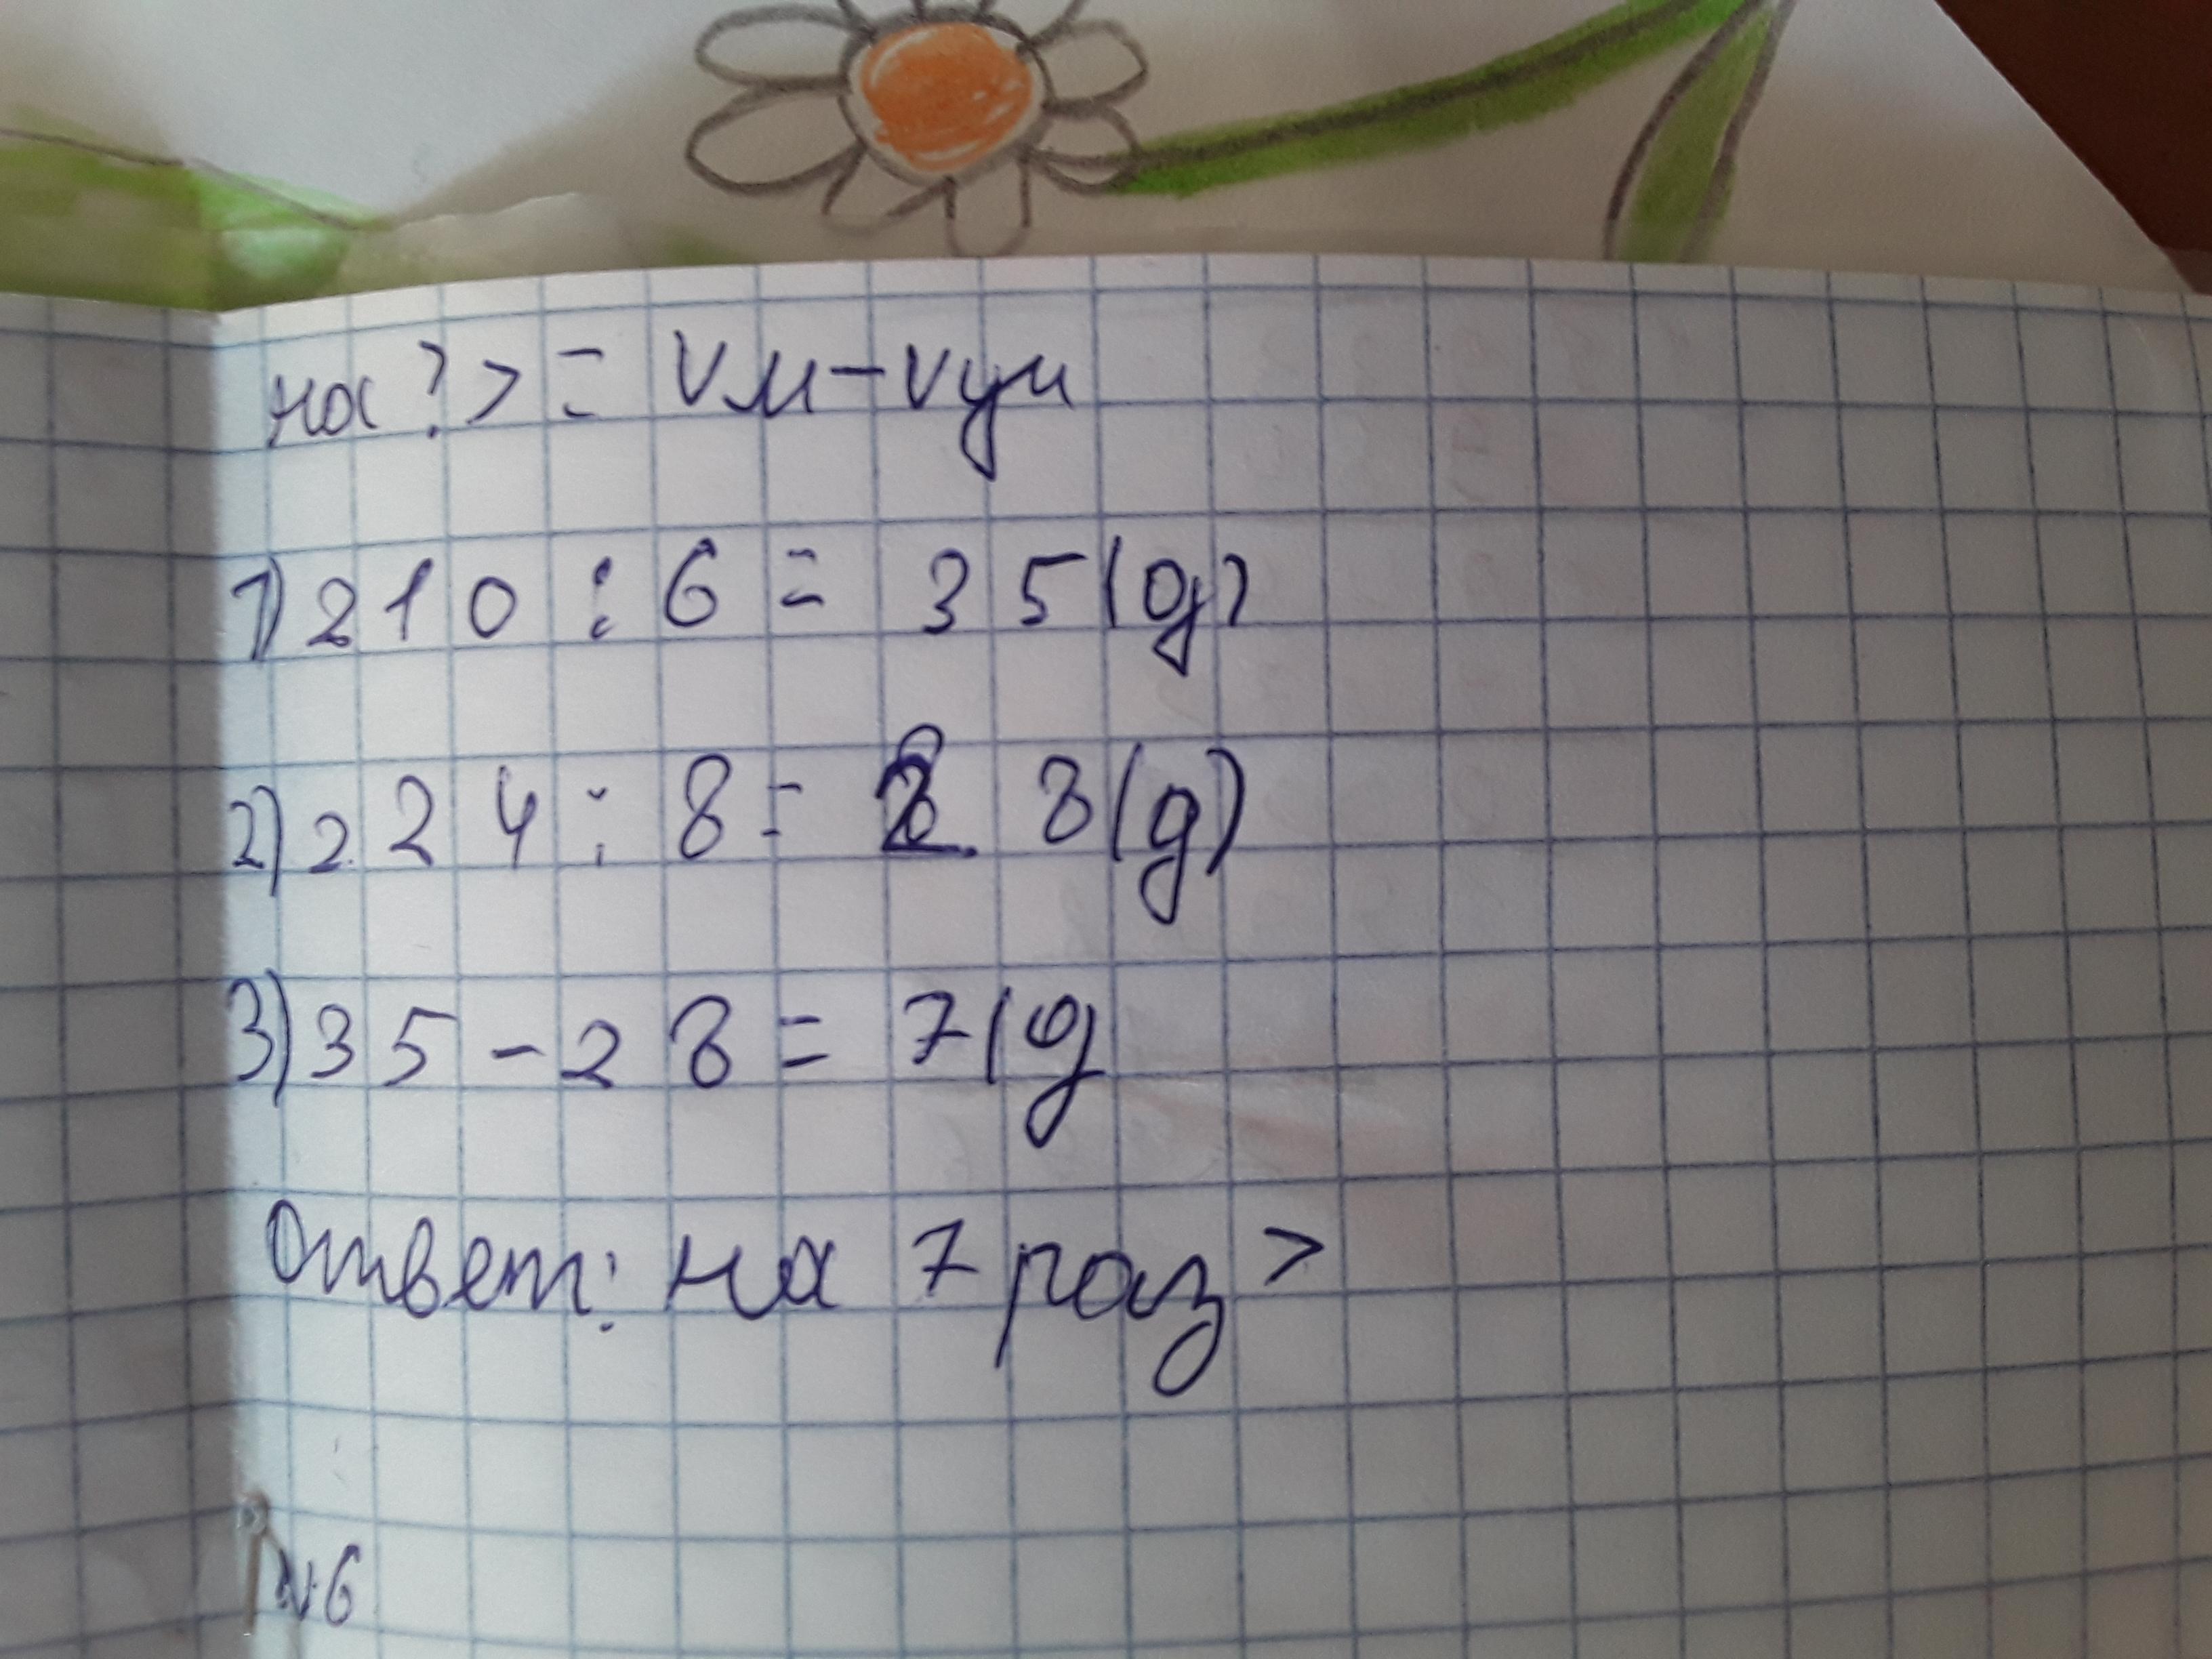 на ? > = Vм - Vуч
1) 210 : 6 = 35 (д)
2) 224 : 8 = 28 (д)
3) 35 - 28 = 7 (д
Ответ: на 7 раз >
№6